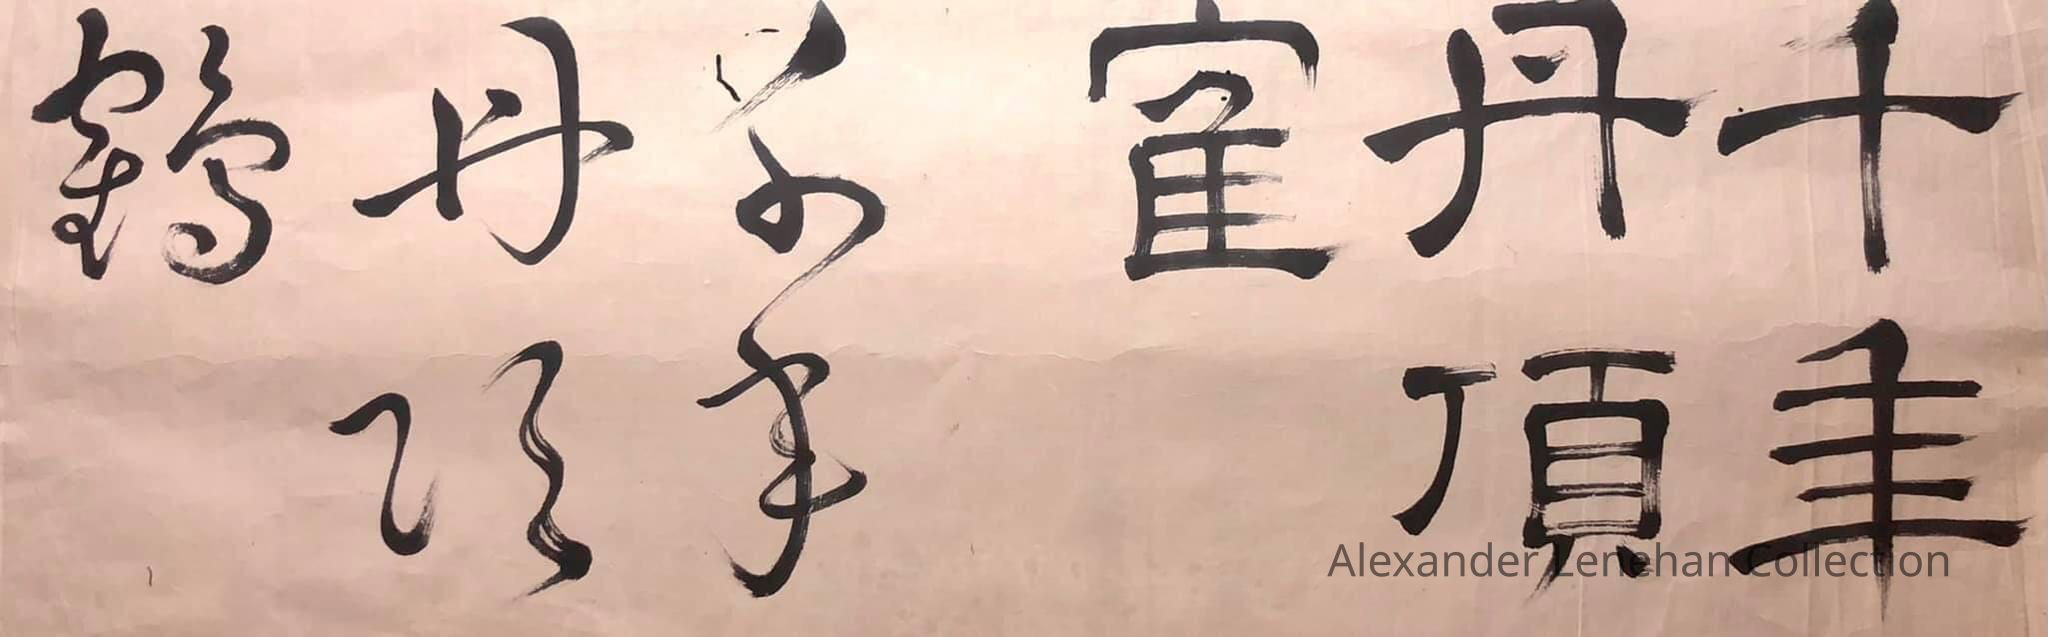 千年
丹頂
寉
千年
丹頂
鶴
Alexander Lenehan Collection